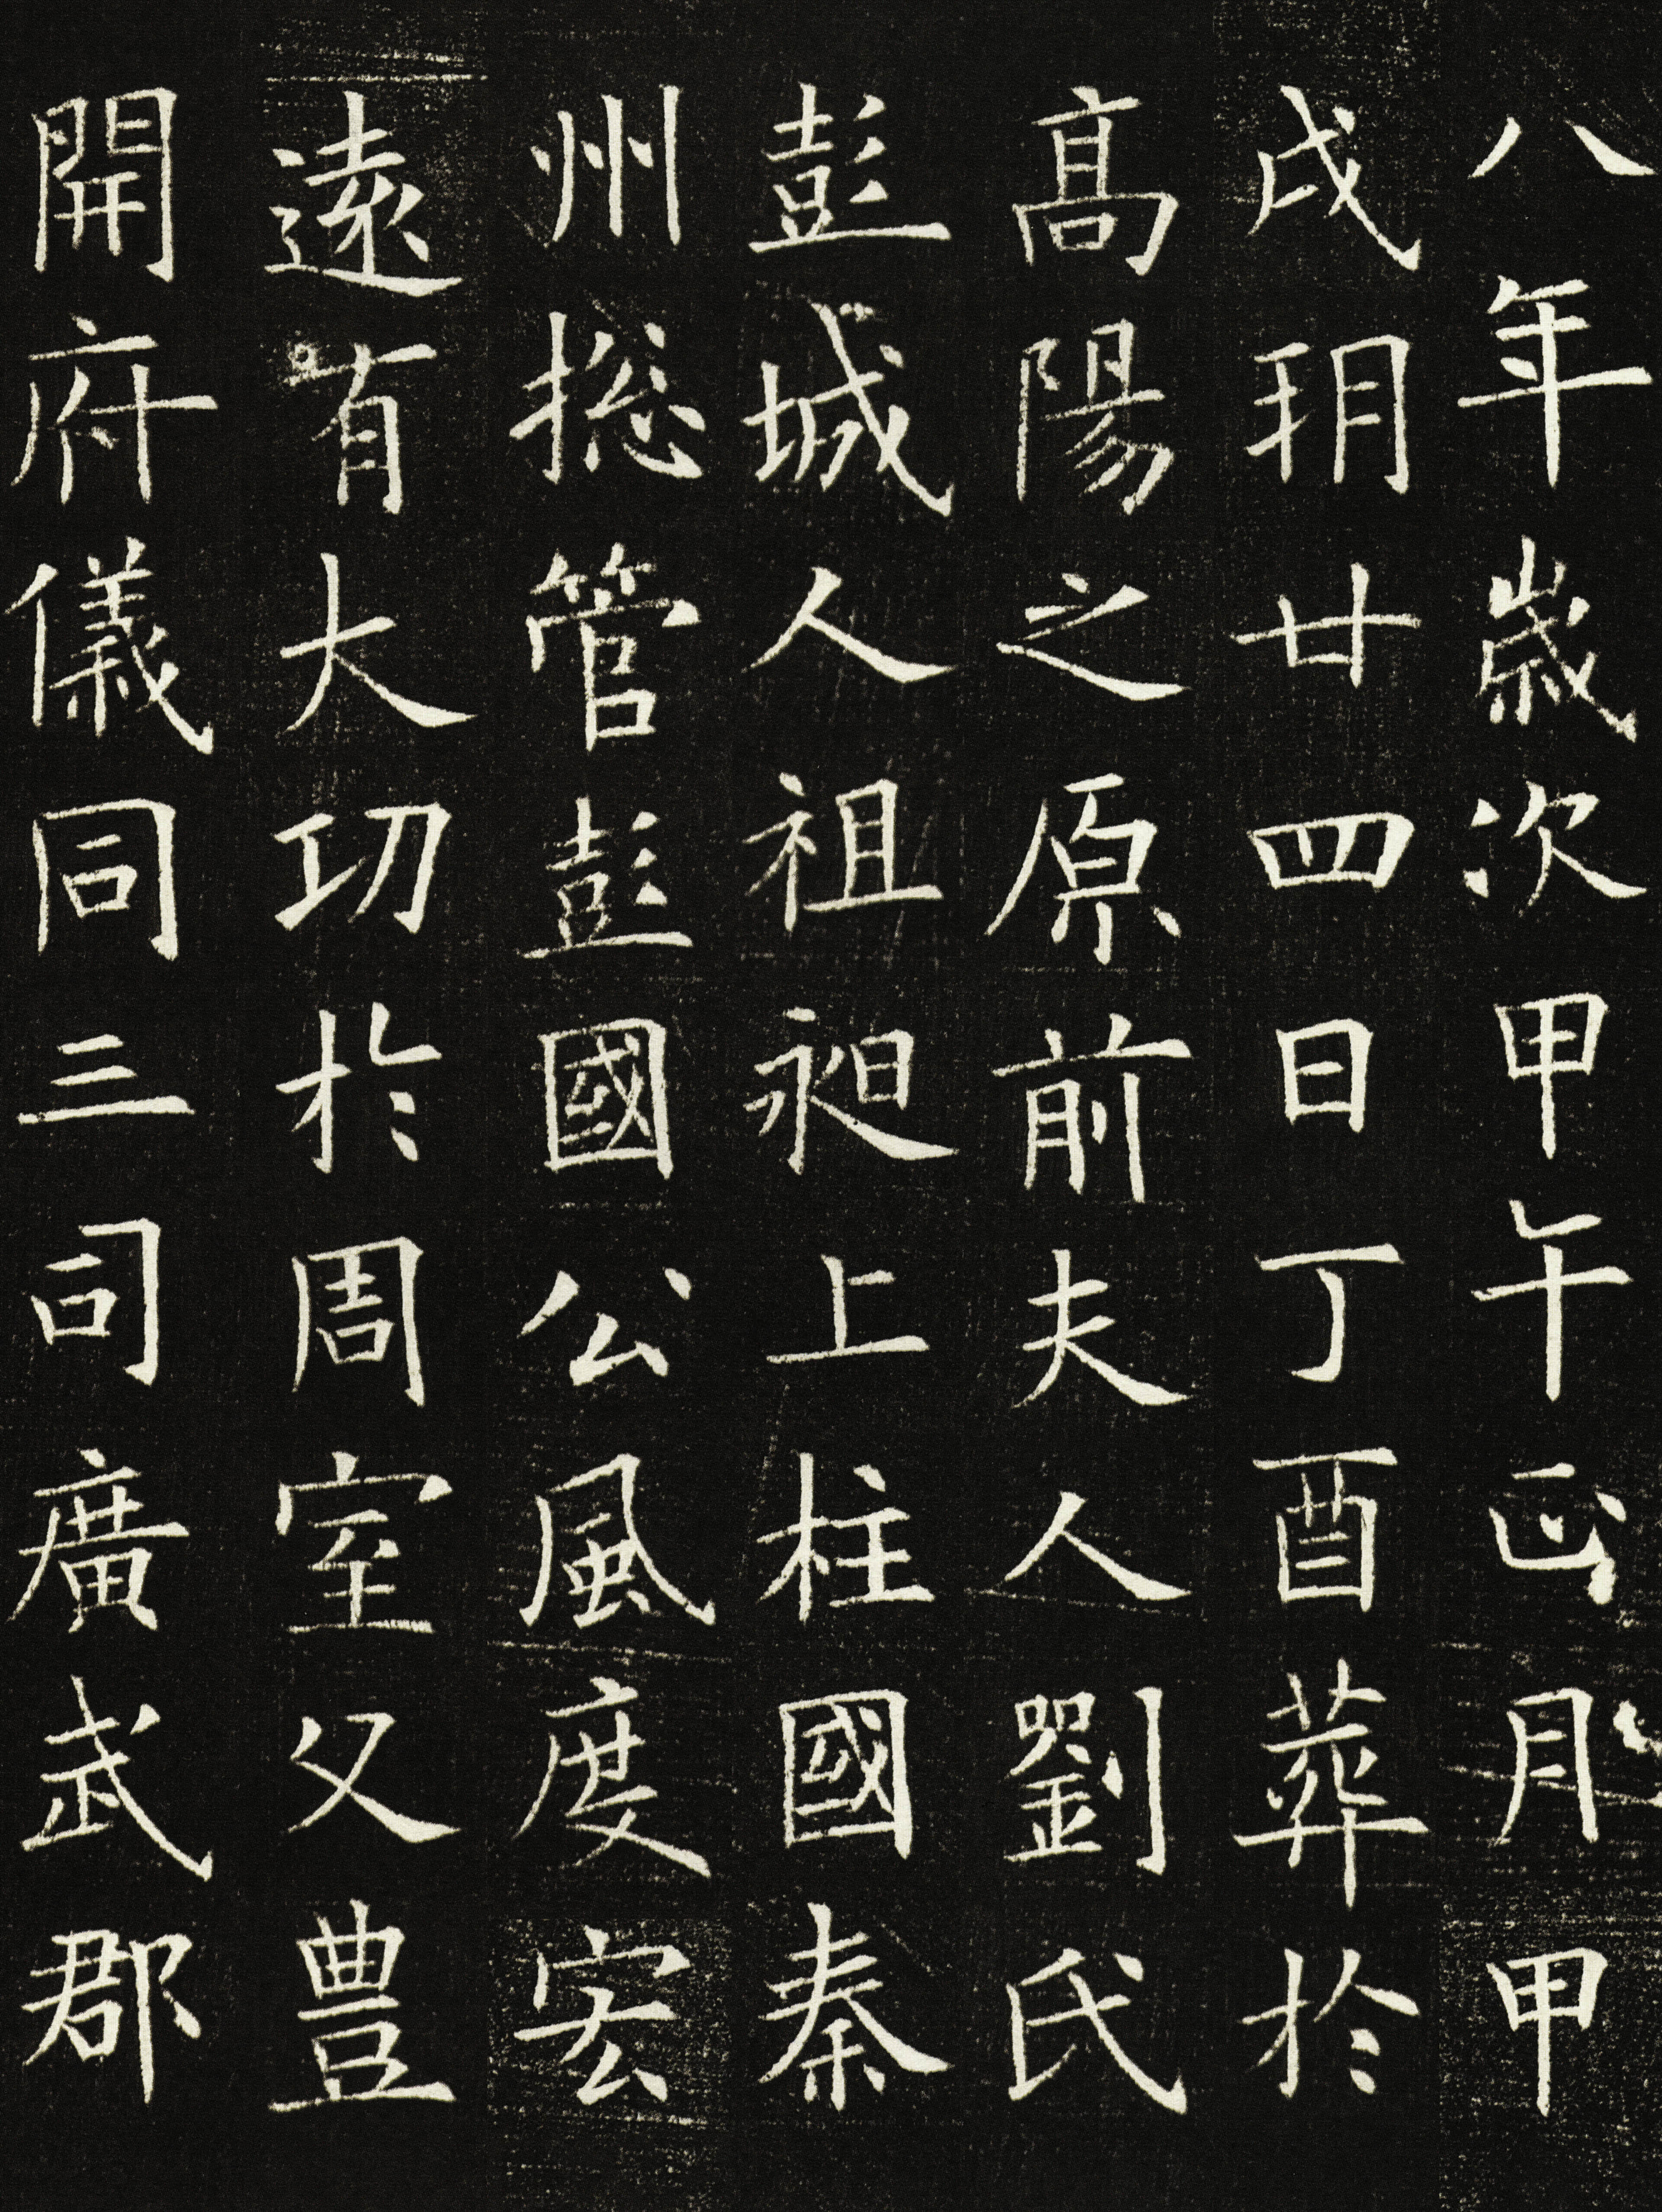 八年歲次甲午正月甲
戌朔廿四日丁酉葬於
髙陽之原前夫人劉氏
彭城人祖昶上柱國秦
州摠管彭國公風度宏
遠有大功於周室父豊
開府儀同三司廣武郡